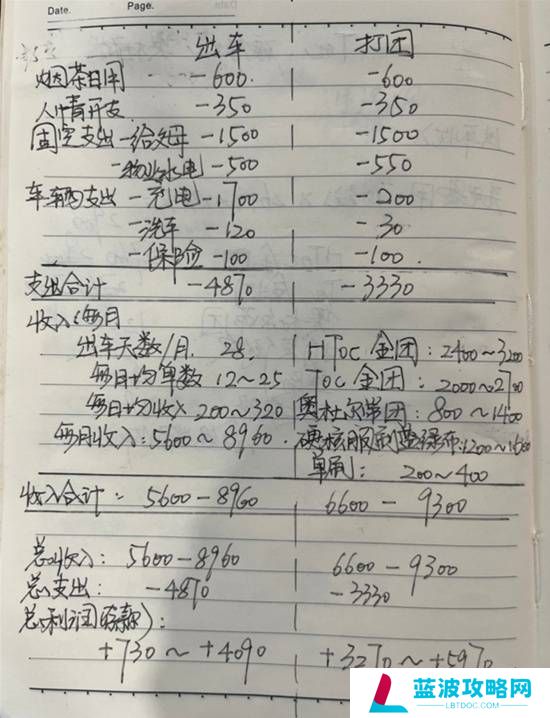 Date. Page.
出车 打团
烟茶日用 -600. -600
人情开支 -350 -350
固定支出-给父母 -1500 -1500
-物业水电 -500 -550
车辆支出-充电 -1700 -200
-洗车 -120 -30
-保险 -100 -100.
支出合计 -4870 -3330
收入(每月
出车天数/月. 28. HToc 金团: 2400~3200
每日均单数 12~25 Toc 金团: 2000~2700
每日均收入 200~320 奥杜尔单团: 800~1400
每月收入: 5600~8960. 硬核服刷蓝绿布: 1200~1600
单刷: 200~400
收入合计: 5600-8960 6600-9300
总收入: 5600-8960 6600-9300
总支出: -4870 -3330
总利润(存款):
+730~+4090 +3270~+5970
蓝波攻略网
LBTDOC.COM